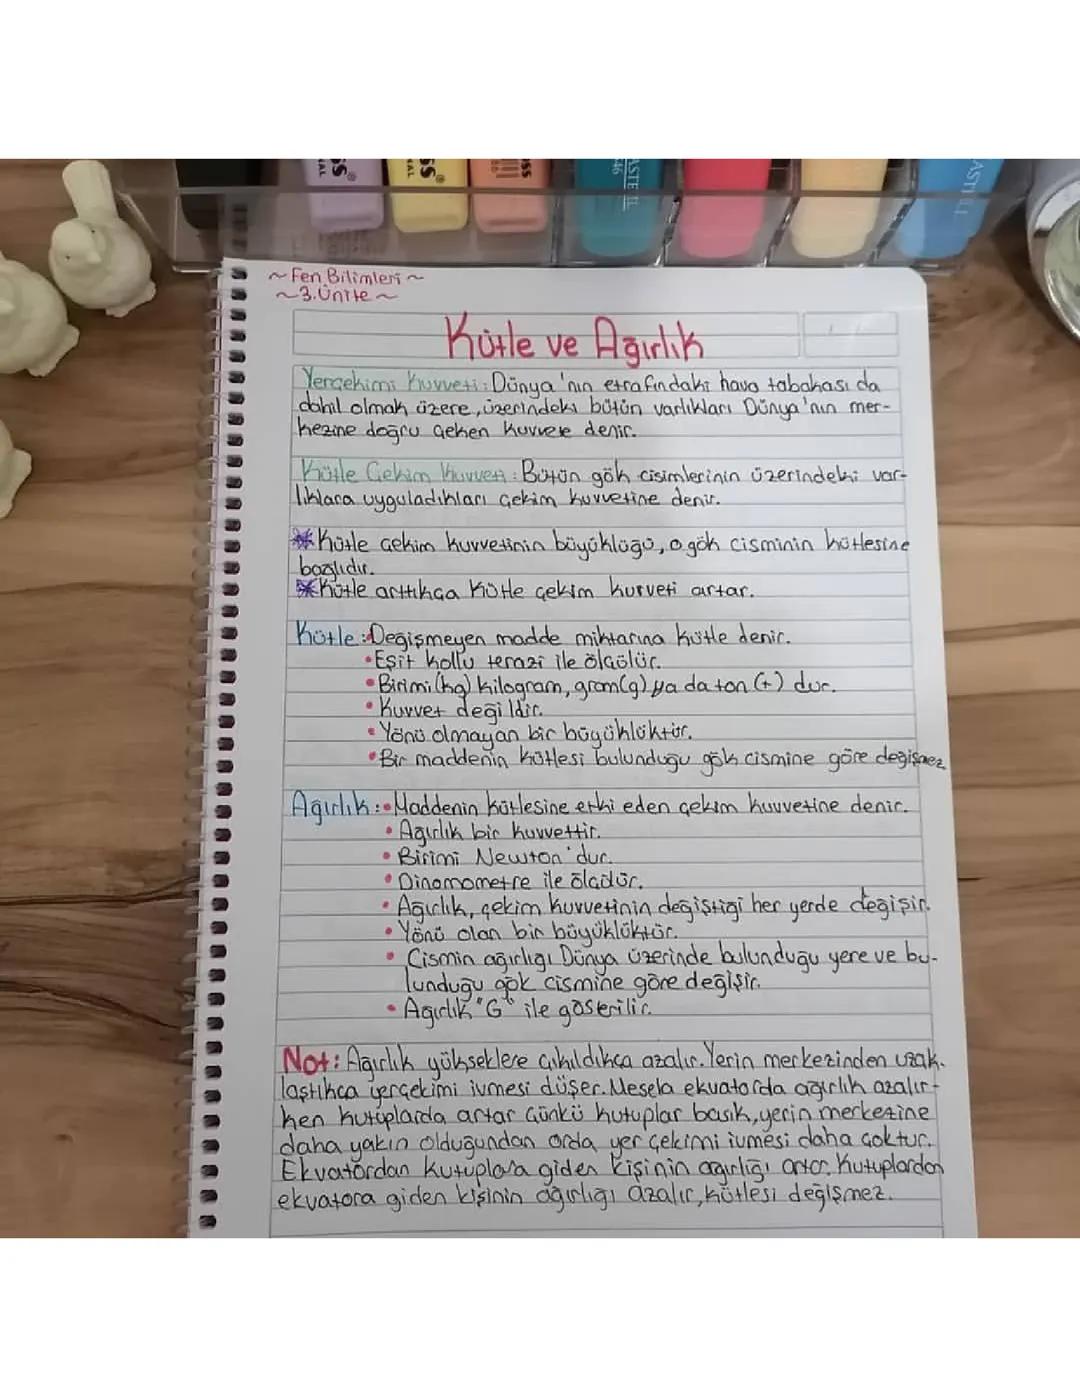 SS
AL
SS
AL
SS
ASTEL
46
ASTEL
~Fen Bilimleri~
~3.Ünite~
Kütle ve Ağırlık
Yerçekimi Kuvveti: Dünya'nın etrafındaki hava tabakası da
dahil olmak üzere, üzerindeki bütün varlıkları Dünya'nın mer-
kezine doğru çeken kuvvete denir.
Kütle Çekim Kuvveti: Bütün gök cisimlerinin üzerindeki var-
lıklara uyguladıkları çekim kuvvetine denir.
Kütle çekim kuvvetinin büyüklüğü, o gök cisminin kütlesine
bağlıdır.
Kütle arttıkça kütle çekim kuvveti artar.
Kütle: •Değişmeyen madde miktarına kütle denir.
•Eşit kollu terazi ile ölçülür.
•Birimi (kg) kilogram, gram(g) ya da ton (t) dur.
•Kuvvet değildir.
•Yönü olmayan bir büyüklüktür.
•Bir maddenin kütlesi bulunduğu gök cismine göre değişmez
Ağırlık: •Maddenin kütlesine etki eden çekim kuvvetine denir.
•Ağırlık bir kuvvettir.
•Birimi Newton'dur.
•Dinamometre ile ölçülür.
•Ağırlık, çekim kuvvetinin değiştiği her yerde değişir.
•Yönü olan bir büyüklüktür.
•Cismin ağırlığı Dünya üzerinde bulunduğu yere ve bu-
lunduğu gök cismine göre değişir.
•Ağırlık "G" ile gösterilir.
Not: Ağırlık yükseklere çıkıldıkça azalır. Yerin merkezinden uzak-
laştıkça yerçekimi ivmesi düşer. Mesela ekvatorda ağırlık azalır-
ken kutuplarda artar Çünkü kutuplar basık, yerin merkezine
daha yakın olduğundan orda yer çekimi ivmesi daha çoktur.
Ekvatordan kutuplara giden kişinin ağırlığı artar. Kutuplardan
ekvatora giden kişinin ağırlığı azalır, kütlesi değişmez.